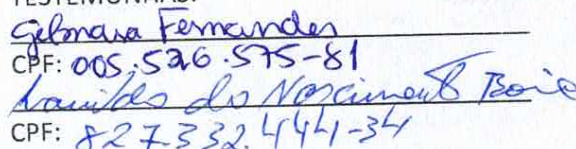 TESTEMUNHAS:
Gilmara Fernandes
CPF: 005.526.575-81
do Nascimento
CPF: 827.332.441-34